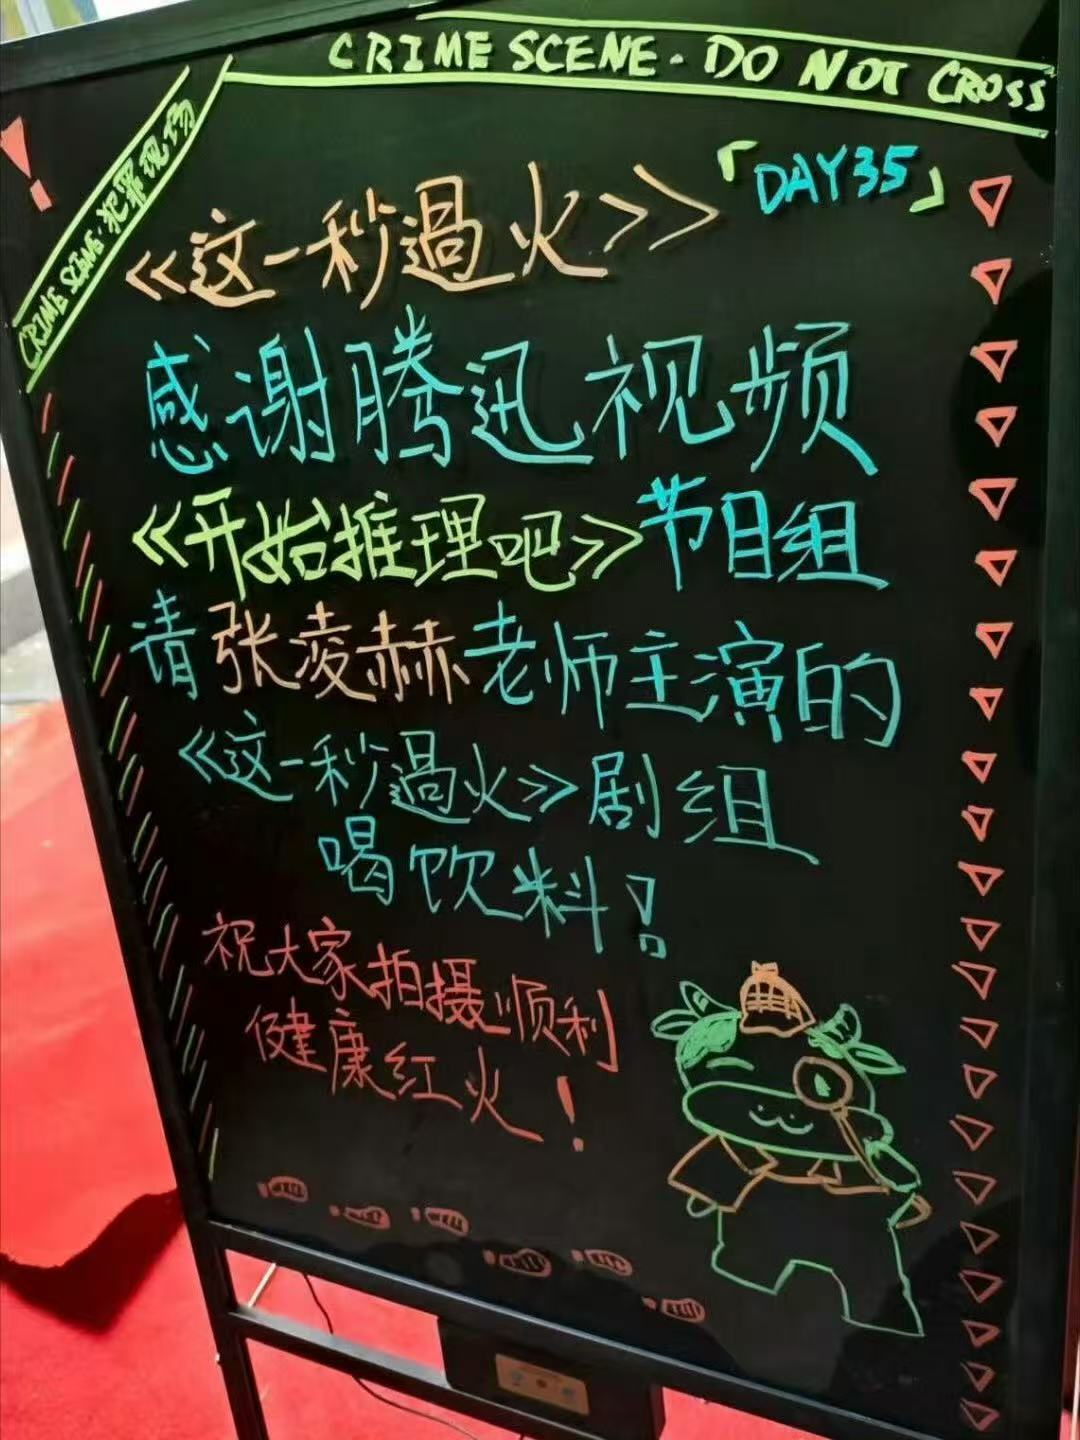 CRIME SCENE · DO NOT CROSS
CRIME SCENE · 犯罪现场
「DAY35」
《这一秒過火》
感谢腾迅视频
《开始推理吧》节目组
请张凌赫老师主演的
《这一秒過火》剧组
喝饮料！
祝大家拍摄顺利
健康红火！